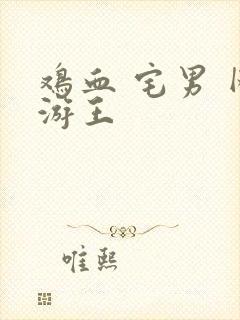 鸡血 宅男
游王
唯熙